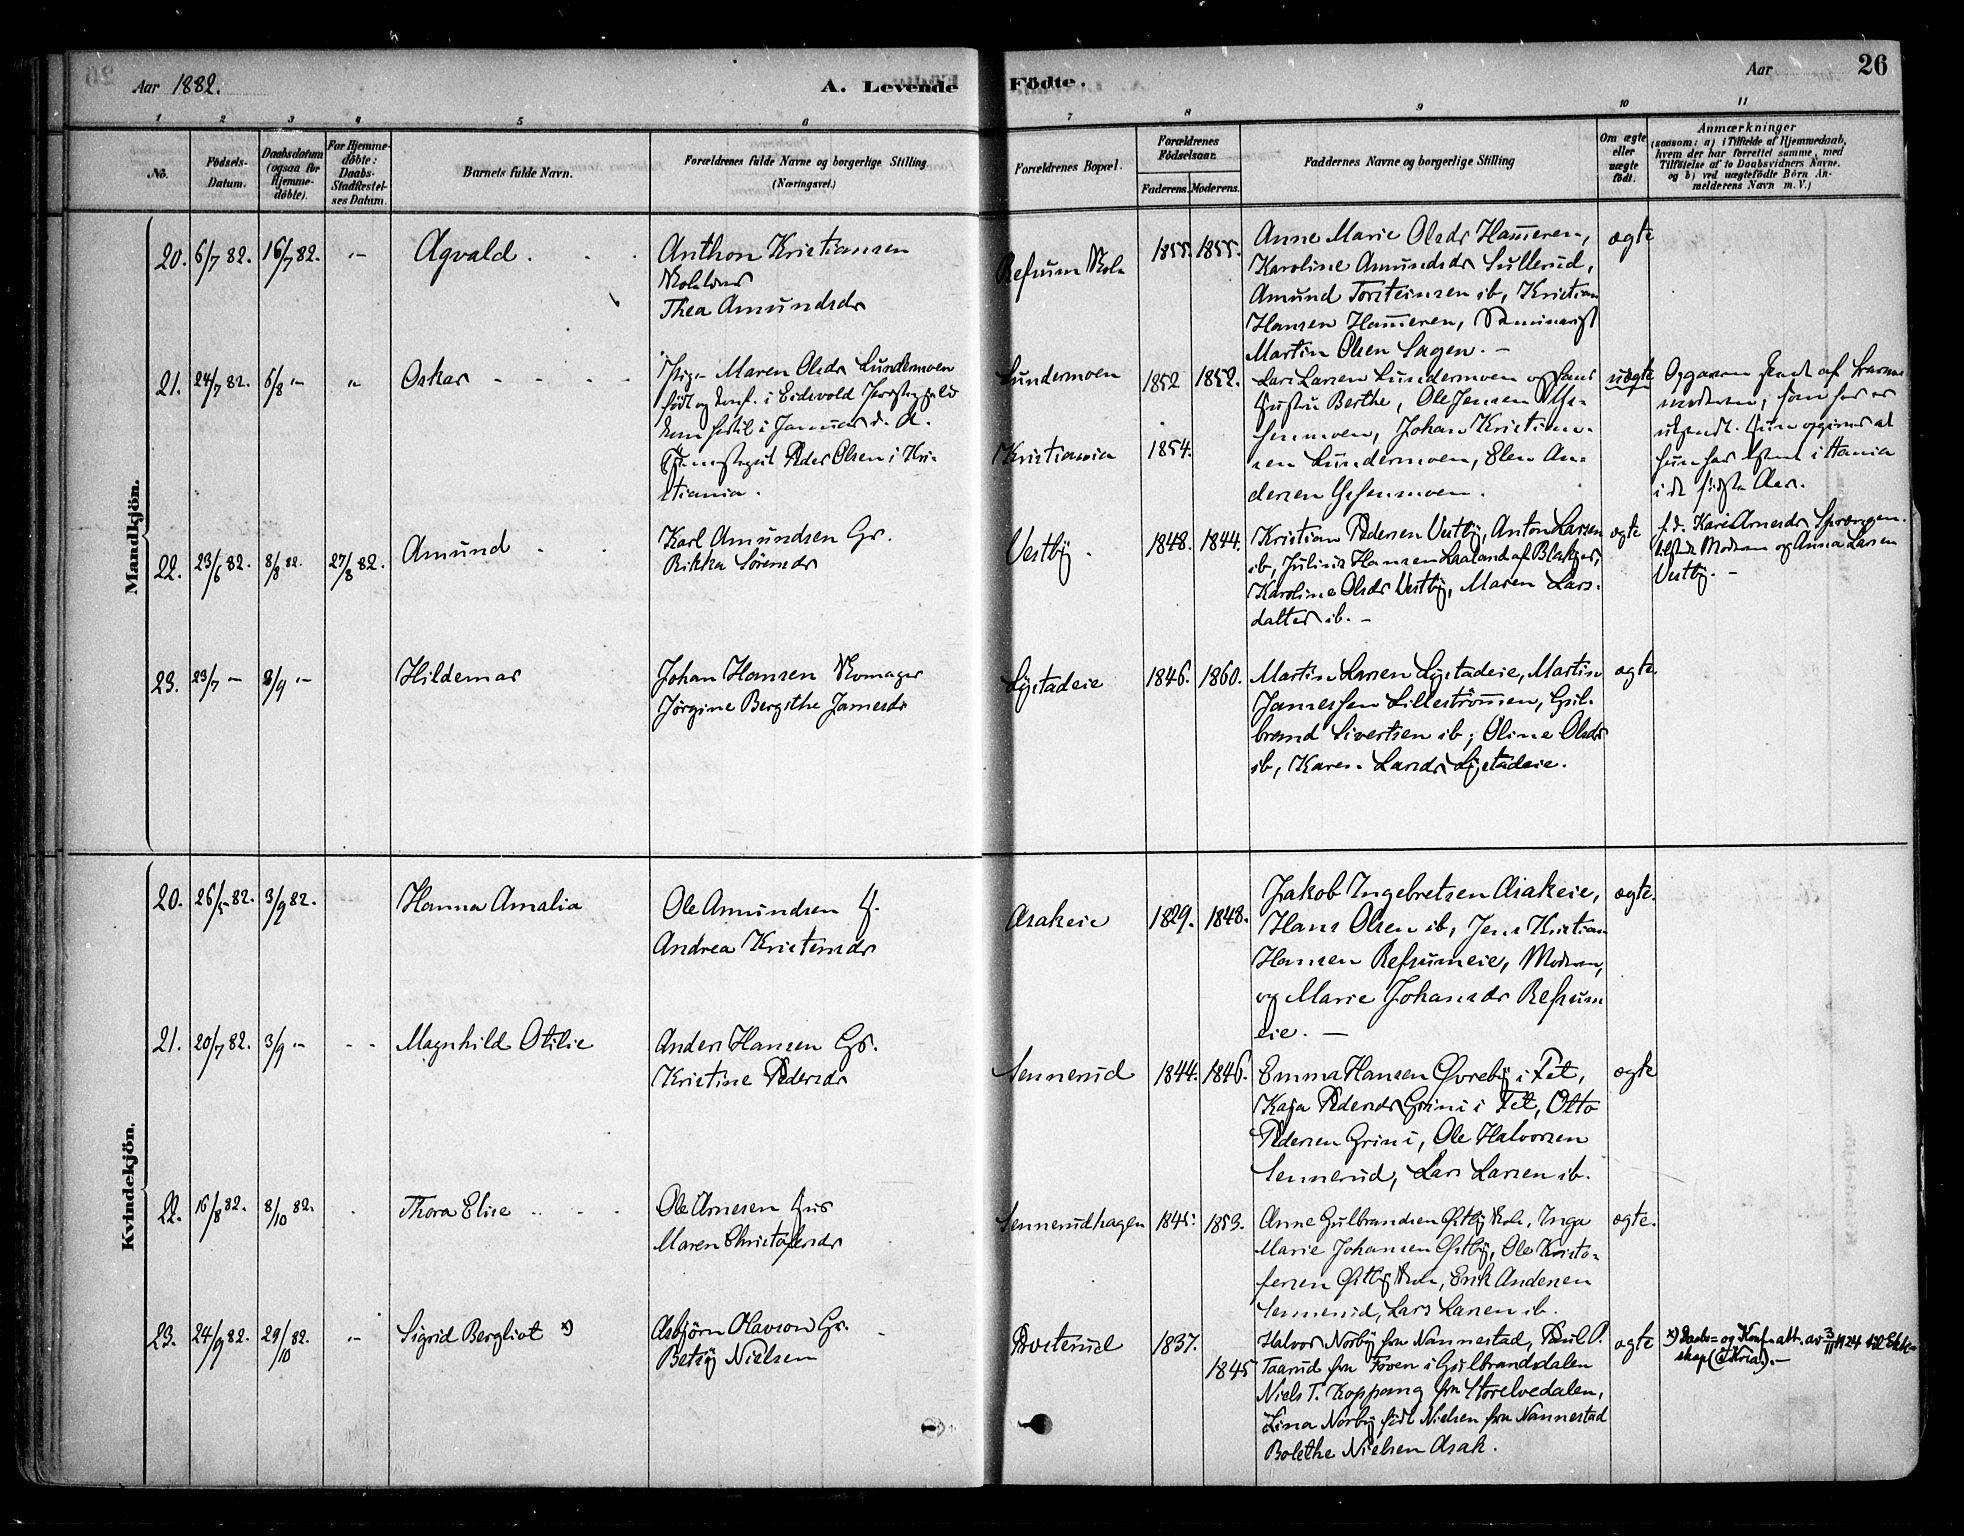 Aar 1882.
A. Levende
Födte.
Aar
26
1 2 3 4 5 6 7 8 9 10 11
No.
Födsels-
Datum.
Daabsdatum
(ogsaa for
Hjemme-
döbte).
For Hjemme-
döbte:
Daabs-
Stadfæstel-
ses Datum.
Barnets fulde Navn.
Forældrenes fulde Navne og borgerlige Stilling
(Næringsvei.)
Forældrenes Bopæl.
Forældrenes
Födselsaar.
Faderens. Moderens.
Faddernes Navne og borgerlige Stilling
Om ægte
eller
uægte
födt.
Anmærkninger
(saasom: a) i Tilfælde af Hjemmedaab,
hvem der har forrettet samme, med
Tilföielse af to Daabsvidners Navne,
og b) ved uægtefödte Börn An-
melderens Navn m. V.)
Mandkjön.
20. 6/7 82. 16/7 82. "- Agvald
Anthon Kristiansen
Thea Amundsdr
Refsum 1855. 1855.
Anne Marie Olsdr Hammeren,
Karoline Amundsdr Sullerud,
Amund Torsteinsen ib, Kristian
Hansen Hammeren, Seminarist
Martin Olsen Sagen. -
ægte
21. 24/7 82. 6/8 "- " Oskar
Pige Maren Olsdr Lundermoen
født og konf. i Eidsvold
kom hertil i Januar d. A.
Peder Olsen i Kri-
stiania.
Lundermoen 1852 1852.
Kristiania 1854.
Lars Larsen Lundermoen og hans
Hustru Berthe, Ole Jensen
Johan Kristian-
sen Lundermoen, Elen An-
dersen
uægte
Opgaven sendt af Barne-
moderen, som har
22. 23/6 82. 8/8 82. 27/8 82. Amund
Karl Amundsen Gr.
Rikka Sørensdr
Vestby. 1848. 1844.
Kristian Pedersen Vestby, Anton Larsen
ib, Julius Hansen Aaland af Blakjer,
Karoline Olsdr Vestby, Maren Lars-
datter ib. -
ægte
h.d. Kari Arnesdr Sprængen.
tilstede Modren og Anna Larsen
Vestby. -
23. 23/7 - 3/9 "- Hildemar
Johan Hansen Skomager
Jørgine Bergithe Jamesdr
Lystadeie 1846. 1860.
Martin Larsen Lystadeie, Martin
Jamessen Lillestrømmen, Gul-
brand Sivertsen ib, Oline Olsdr
ib, Karen Larsdr Lystadeie.
ægte.
Kvindekjön.
20. 26/5 82. 3/9 82. Hanna Amalia
Ole Amundsen
Andrea Kristensdr
Asakeie 1829. 1848.
Jakob Ingebretsen Asakeie,
Hans Olsen ib, Jens Kristian
Hansen Refsumeie, Modren,
og Marie Johansdr Refsum
eie. -
ægte.
21. 20/7 82. 3/9 "- - - Magnhild Otilie
Anders Hansen Gr.
Kristine Pedersdr
Sennerud 1844. 1846.
Emma Hansen Øvreby i Fet,
Kaja Pedersdr Grini i Fet, Otto
Pedersen Grini, Ole Halvorsen
Sennerud, Lars Larsen ib.
ægte
22. 16/8 82. 8/10 82. Thora Elise
Ole Arnesen Hus
Maren Christofersdr
Sennerudhagen 1845. 1853.
Anne Gulbrandsen Østby Inga
Marie Johansen Østby, Ole Kristo-
fersen Østby Erik Andersen
Sennerud, Lars Larsen ib.
ægte.
23. 24/9 82. 29/10 82. "- Sigrid Bergliot x)
Asbjørn Olavson Gr.
Betsy Nielsen
Prosterud 1837.
1845
Halvor Norby fra Nannestad, Paul P.
Taarud fra Foven i Gulbrandsdalen
Niels T. Koppang fra Storelvedalen,
Lina Norby født Nielsen fra Nannestad
Bolethe Nielsen Asak.
ægte
x) Daabs= og Konf. att. av 3/11 1924 til Ekte-
skap (i Kria.). -